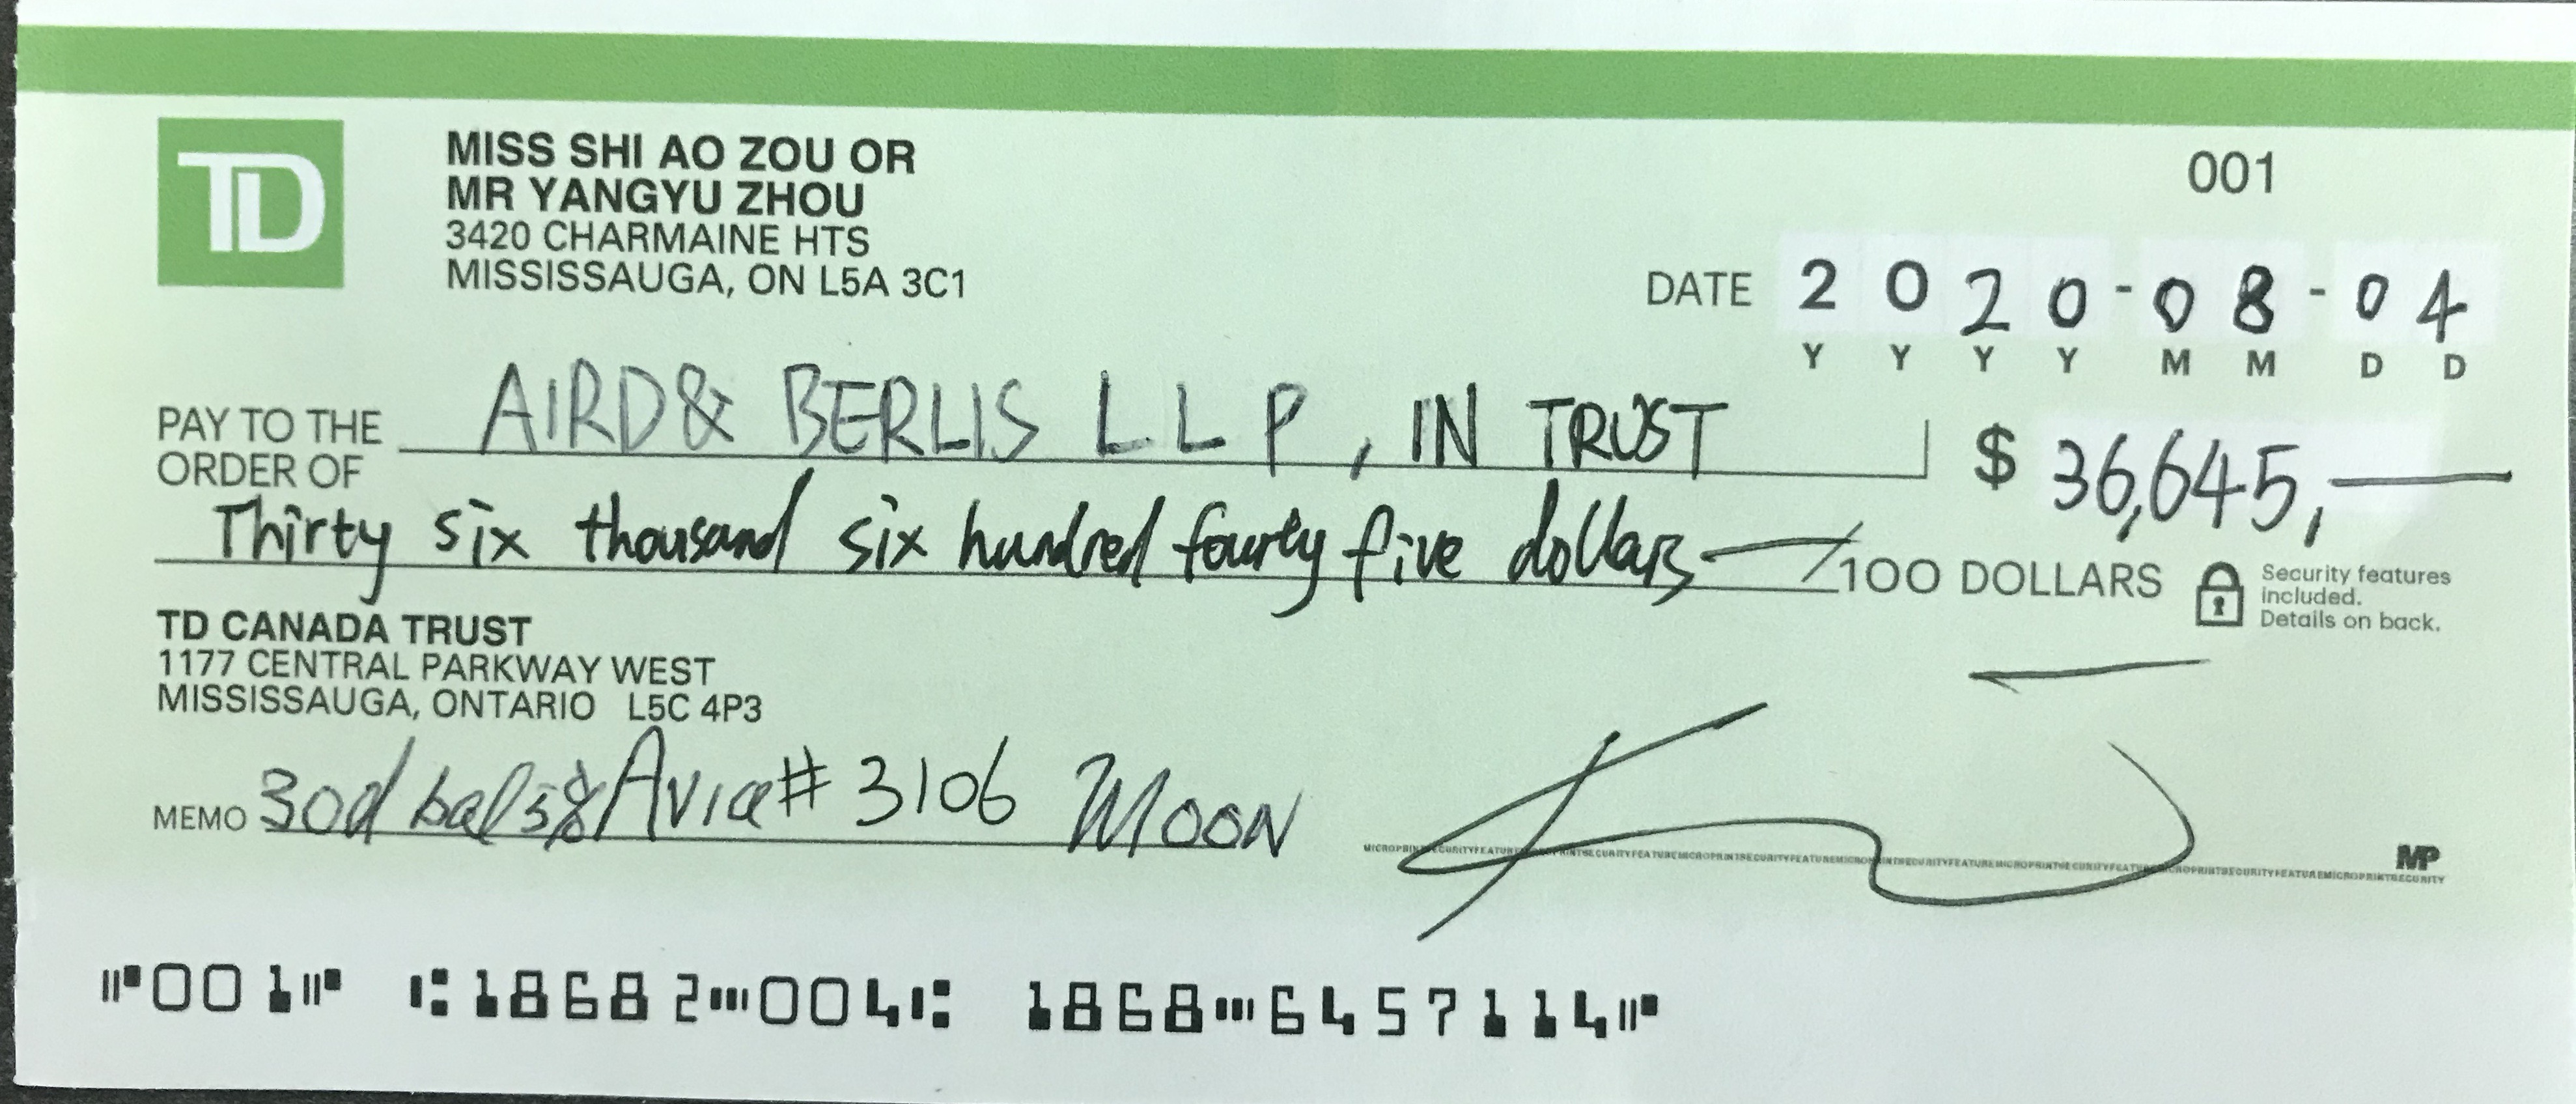 TD
MISS SHI AO ZOU OR
MR YANGYU ZHOU
3420 CHARMAINE HTS
MISSISSAUGA, ON L5A 3C1
001
DATE 2020-08-04
Y Y Y Y M M D D
PAY TO THE ORDER OF AIRD & BERLIS LLP, IN TRUST $ 36,645,—
Thirty six thousand six hundred fourty five dollars —/100 DOLLARS
Security features
included.
Details on back.
TD CANADA TRUST
1177 CENTRAL PARKWAY WEST
MISSISSAUGA, ONTARIO L5C 4P3
MEMO 30d Avia# 3106 MOON
MP
⑈001⑈ ⑆18682⑉004⑆ 1868⑉6457114⑈